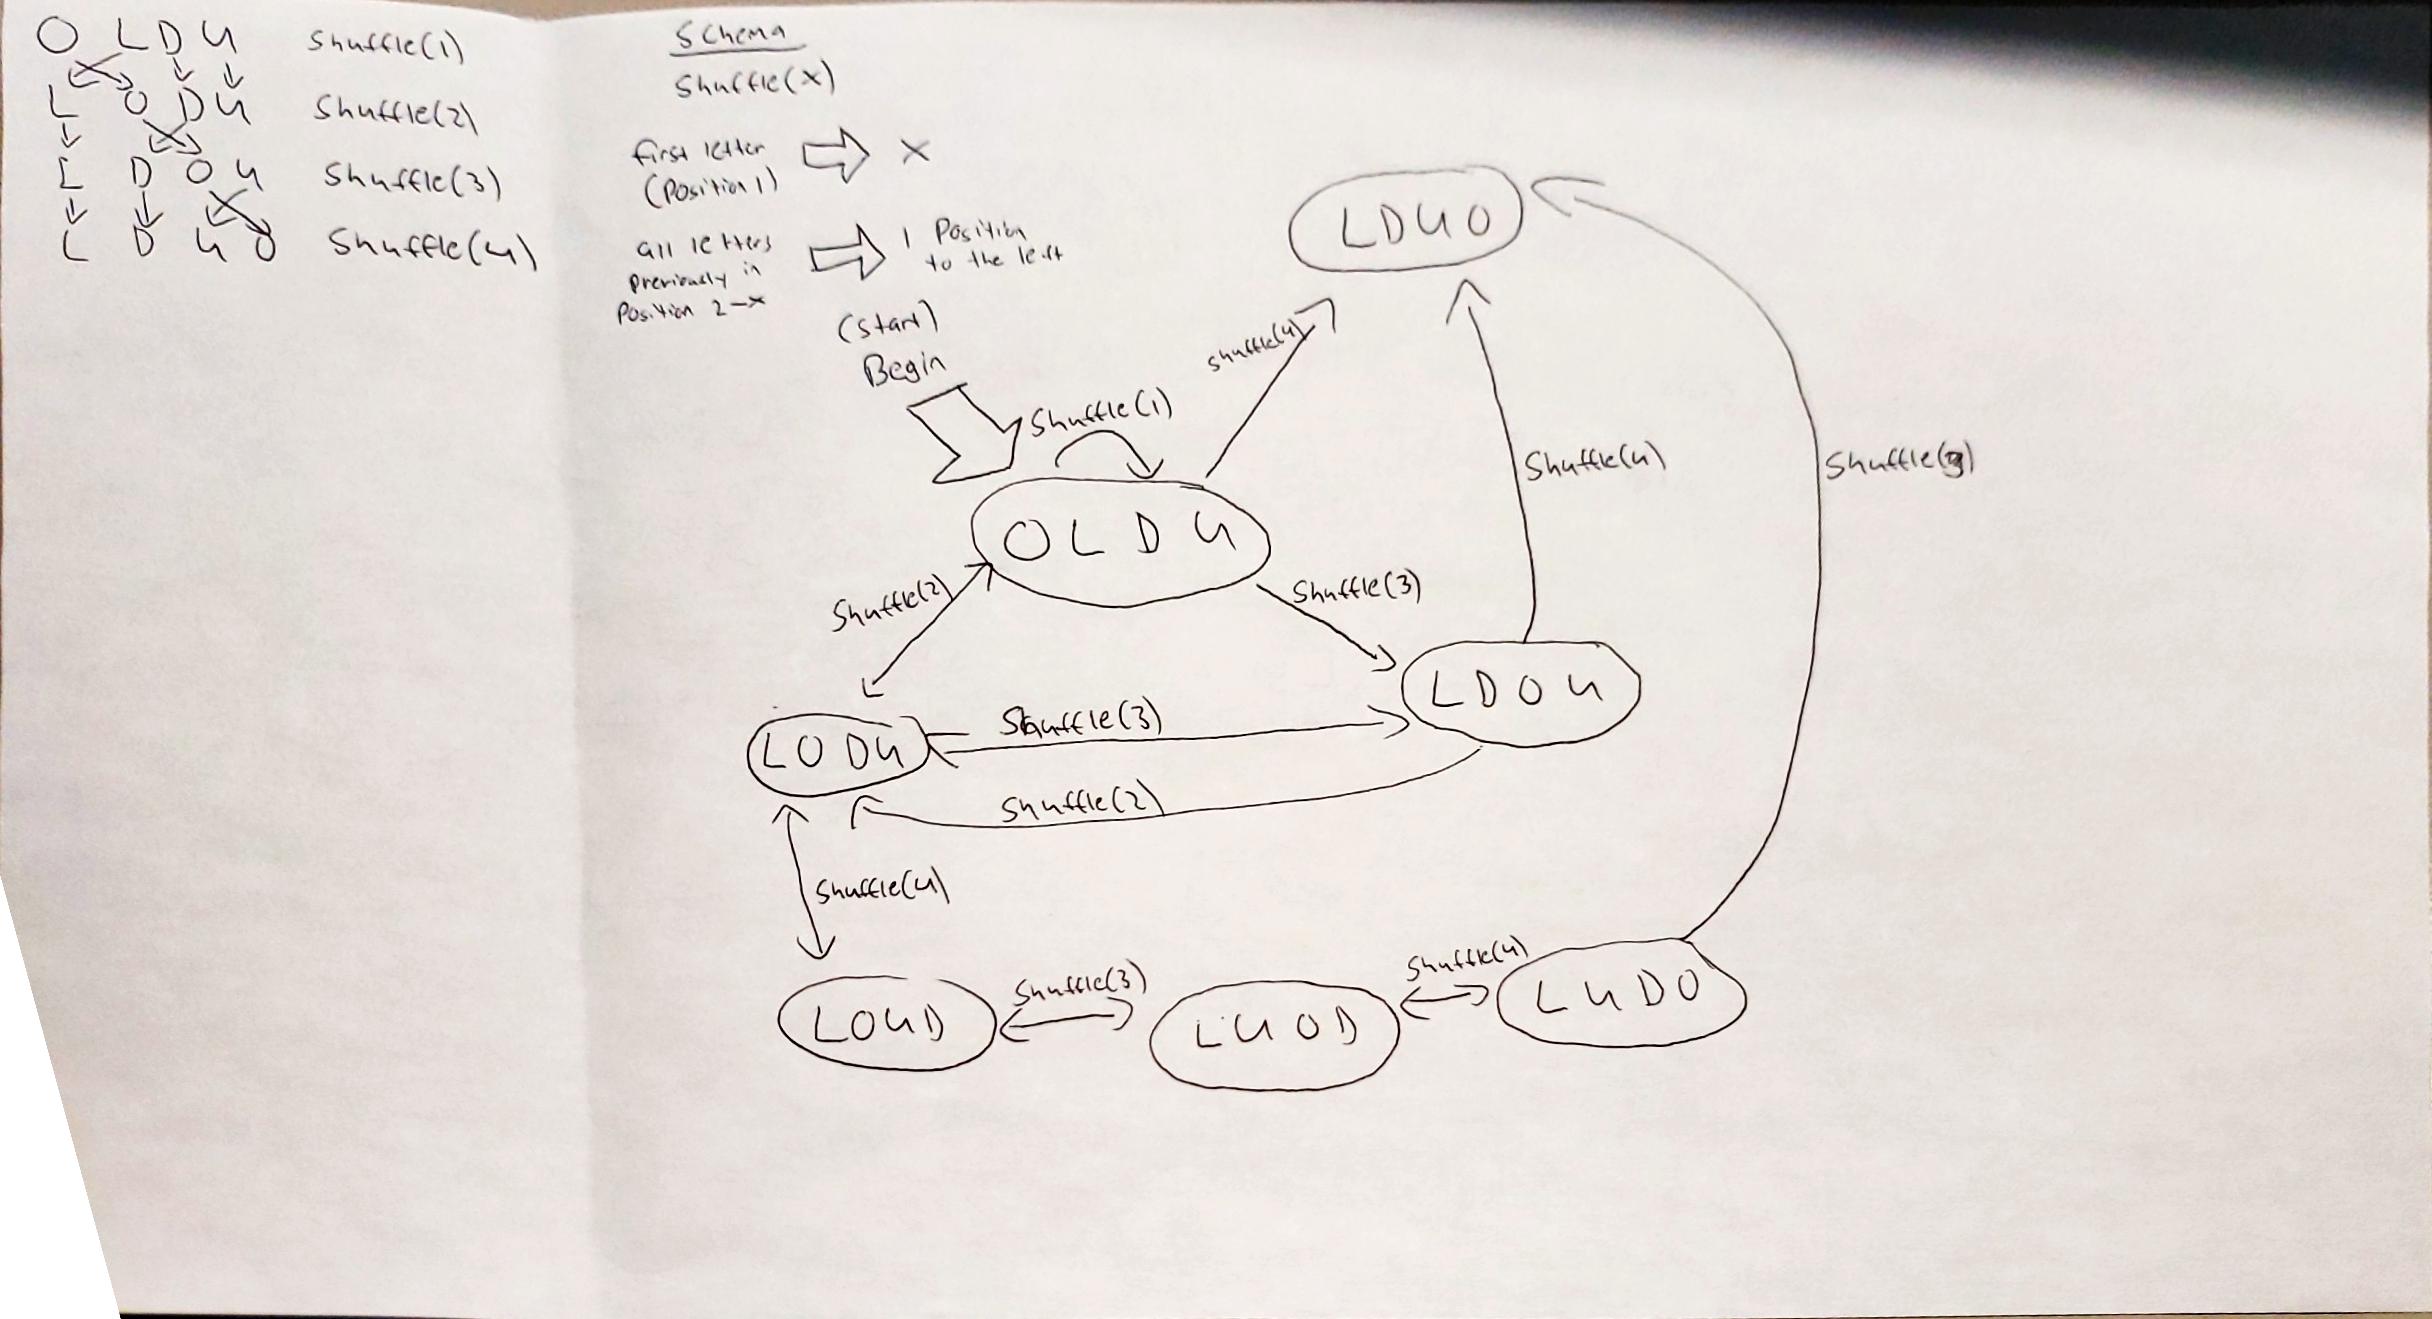 O L D U Shuffle(1)
L O D U Shuffle(2)
L D O U Shuffle(3)
L D U O Shuffle(4)
Schema
Shuffle(x)
first letter
(Position 1)
x
all letters
previously in
Position 2-x
1 Position
to the left
(Start)
Begin
Shuffle(1)
Shuffle(4)
LDUO
O L D U
Shuffle(4)
Shuffle(3)
Shuffle(2)
Shuffle(3)
LDOU
LODU
Shuffle(3)
Shuffle(2)
Shuffle(4)
LOUD
Shuffle(3)
LUOD
Shuffle(4)
LUDO